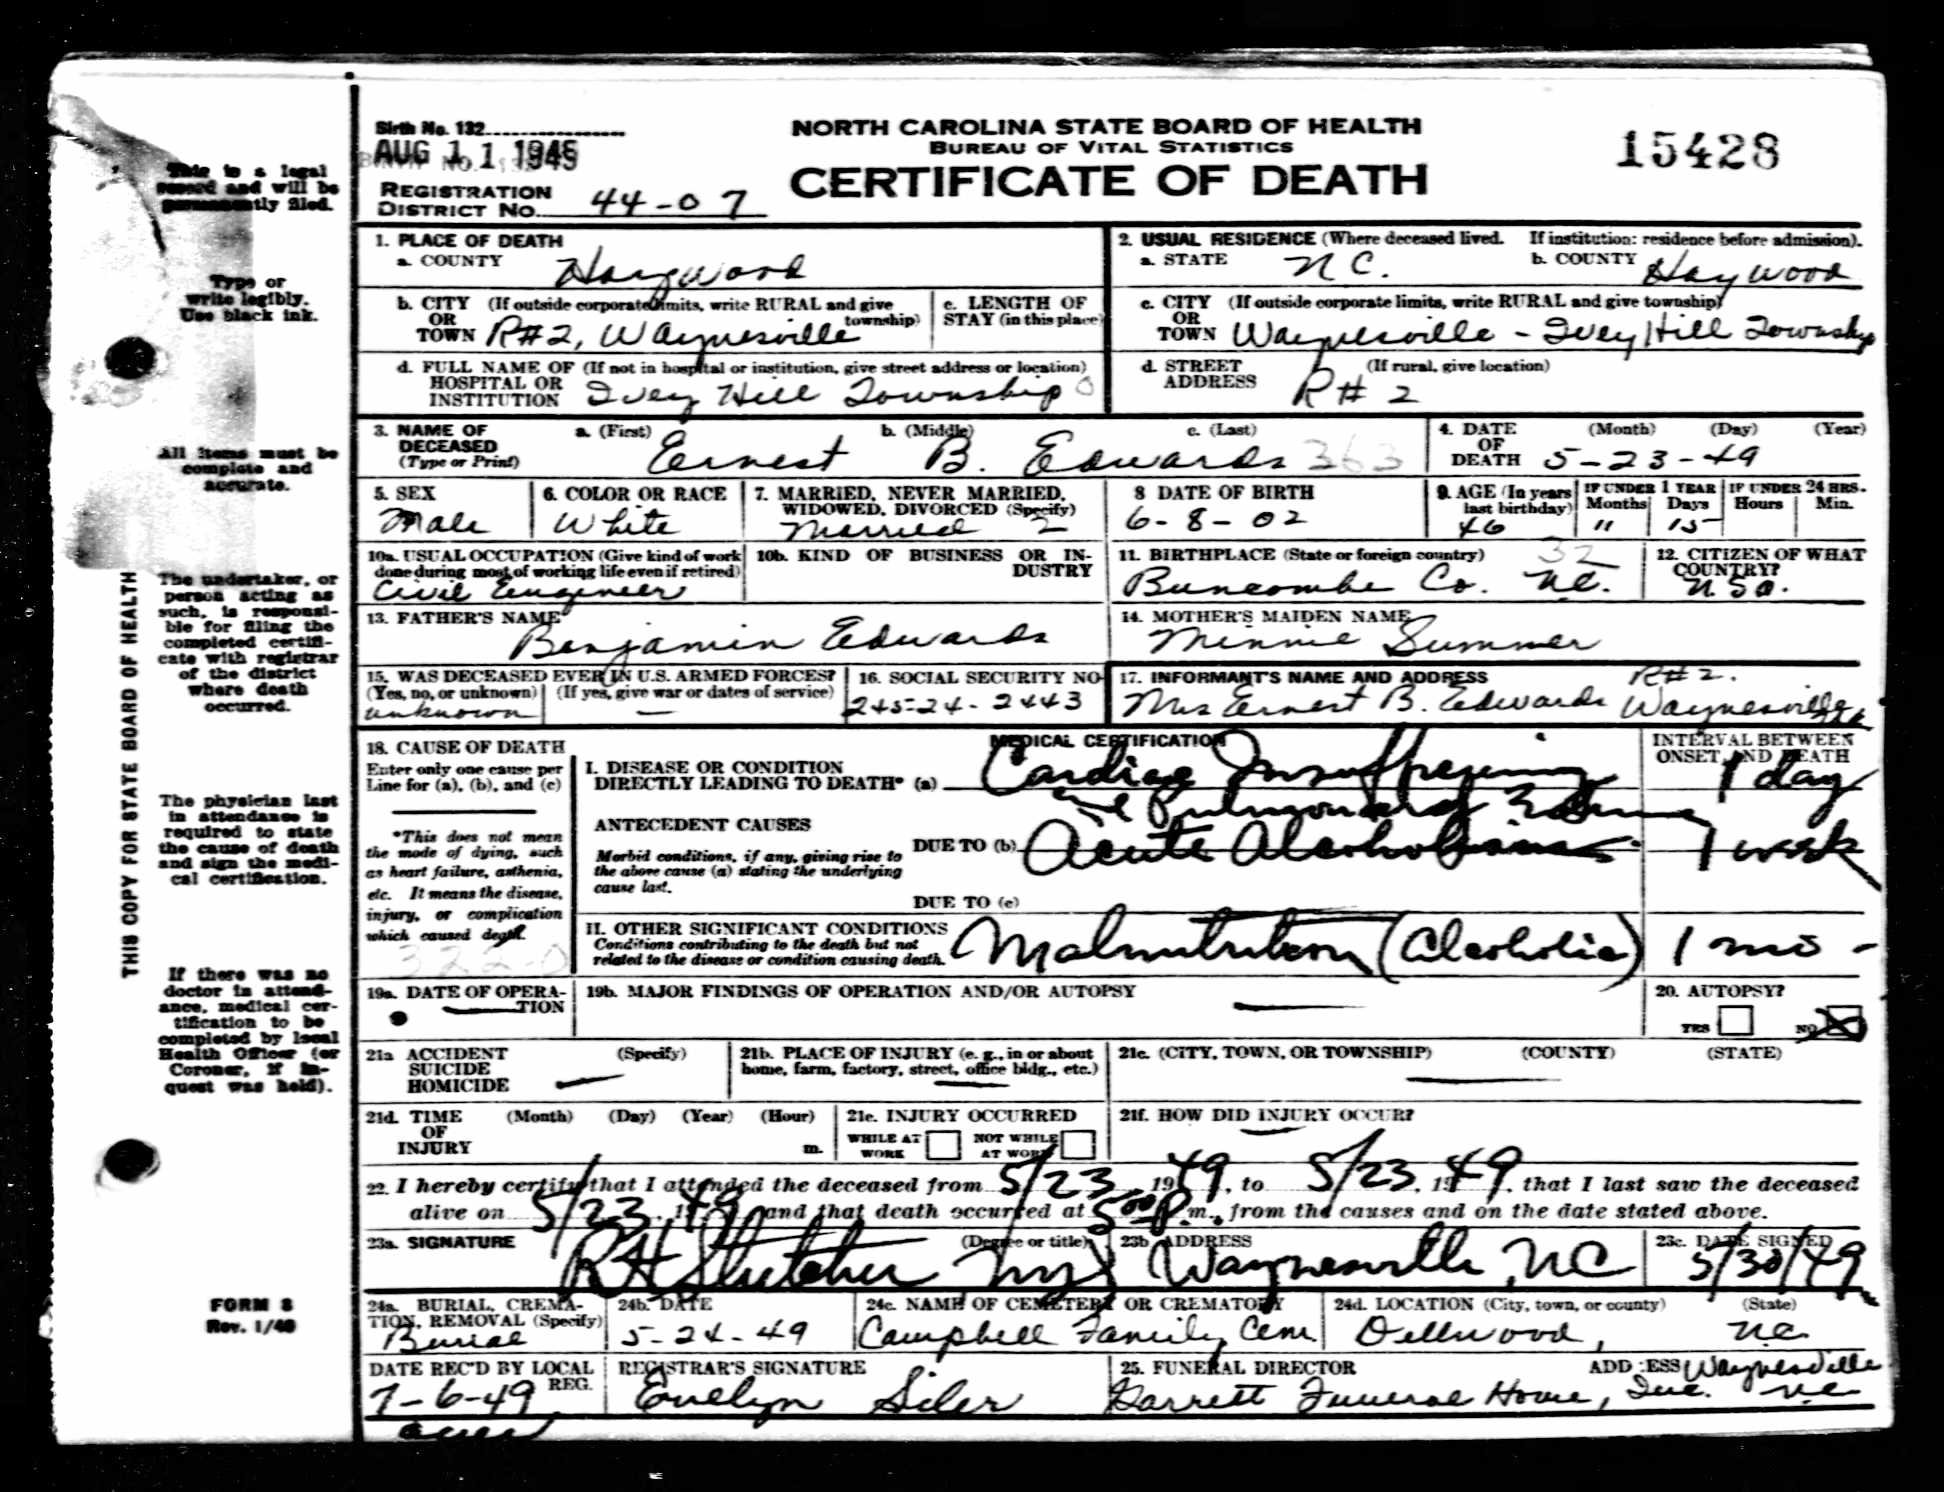 Birth No. 132
AUG 11 1949
NORTH CAROLINA STATE BOARD OF HEALTH
BUREAU OF VITAL STATISTICS
CERTIFICATE OF DEATH
15428
REGISTRATION DISTRICT No. 44-07
This is a legal record and will be permanently filed.
Type or write legibly. Use black ink.
All items must be complete and accurate.
The undertaker, or person acting as such, is responsible for filing the completed certificate with registrar of the district where death occurred.
The physician last in attendance is required to state the cause of death and sign the medical certification.
If there was no doctor in attendance, medical certification to be completed by local Health Officer (or Coroner, if inquest was held).
FORM 8
Rev. 1/49
THIS COPY FOR STATE BOARD OF HEALTH
1. PLACE OF DEATH
a. COUNTY Haywood
b. CITY (If outside corporate limits, write RURAL and give township) OR TOWN R#2, Waynesville
c. LENGTH OF STAY (in this place)
d. FULL NAME OF (If not in hospital or institution, give street address or location) HOSPITAL OR INSTITUTION Ivey Hill Township
2. USUAL RESIDENCE (Where deceased lived. If institution: residence before admission).
a. STATE N C. b. COUNTY Haywood
c. CITY (If outside corporate limits, write RURAL and give township) OR TOWN Waynesville - Ivey Hill Township
d. STREET ADDRESS (If rural, give location) R#2
3. NAME OF DECEASED (Type or Print) a. (First) Ernest b. (Middle) B. c. (Last) Edwards 363
4. DATE OF DEATH (Month) (Day) (Year) 5-23-49
5. SEX Male
6. COLOR OR RACE White
7. MARRIED, NEVER MARRIED, WIDOWED, DIVORCED (Specify) Married 2
8 DATE OF BIRTH 6-8-02
9. AGE (In years last birthday) 46
IF UNDER 1 YEAR Months 11 Days 15
IF UNDER 24 HRS. Hours Min.
10a. USUAL OCCUPATION (Give kind of work done during most of working life even if retired) Civil Engineer
10b. KIND OF BUSINESS OR INDUSTRY
11. BIRTHPLACE (State or foreign country) 32 Buncombe Co. N.C.
12. CITIZEN OF WHAT COUNTRY? USA.
13. FATHER'S NAME Benjamin Edwards
14. MOTHER'S MAIDEN NAME Minnie Summer
15. WAS DECEASED EVER IN U.S. ARMED FORCES? (Yes, no, or unknown) unknown (If yes, give war or dates of service) —
16. SOCIAL SECURITY NO 245-24-2443
17. INFORMANT'S NAME AND ADDRESS Mrs Ernest B. Edwards R#2. Waynesville
18. CAUSE OF DEATH
Enter only one cause per Line for (a), (b), and (c)
*This does not mean the mode of dying, such as heart failure, asthenia, etc. It means the disease, injury, or complication which caused death.
322.0
MEDICAL CERTIFICATION
INTERVAL BETWEEN ONSET AND DEATH
I. DISEASE OR CONDITION DIRECTLY LEADING TO DEATH* (a) Cardiac Insufficiency 1 day
Pulmonary Edema
ANTECEDENT CAUSES
Morbid conditions, if any, giving rise to the above cause (a) stating the underlying cause last.
DUE TO (b) Acute Alcoholism 1 week
DUE TO (c)
II. OTHER SIGNIFICANT CONDITIONS
Conditions contributing to the death but not related to the disease or condition causing death.
Malnutrition (Alcoholic) 1 mo -
19a. DATE OF OPERATION —
19b. MAJOR FINDINGS OF OPERATION AND/OR AUTOPSY —
20. AUTOPSY? YES NO X
21a ACCIDENT SUICIDE HOMICIDE (Specify) —
21b. PLACE OF INJURY (e. g., in or about home, farm, factory, street, office bldg., etc.) —
21c. (CITY, TOWN, OR TOWNSHIP) (COUNTY) (STATE) —
21d. TIME OF INJURY (Month) (Day) (Year) (Hour) m.
21e. INJURY OCCURRED WHILE AT WORK NOT WHILE AT WORK
21f. HOW DID INJURY OCCUR? —
22. I hereby certify that I attended the deceased from 5/23, 1949, to 5/23, 1949, that I last saw the deceased
alive on 5/23, 1949 and that death occurred at 5:00 P.m., from the causes and on the date stated above.
23a. SIGNATURE (Degree or title)
23b. ADDRESS Waynesville, NC
23c. DATE SIGNED 5/30/49
24a. BURIAL, CREMATION, REMOVAL (Specify) Burial
24b. DATE 5-24-49
24c. NAME OF CEMETERY OR CREMATORY Campbell Family Cem.
24d. LOCATION (City, town, or county) (State) Dellwood, N.C.
DATE REC'D BY LOCAL REG. 7-6-49
REGISTRAR'S SIGNATURE Evelyn Siler
25. FUNERAL DIRECTOR Garrett Funeral Home, Inc. ADDRESS Waynesville N.C.
over